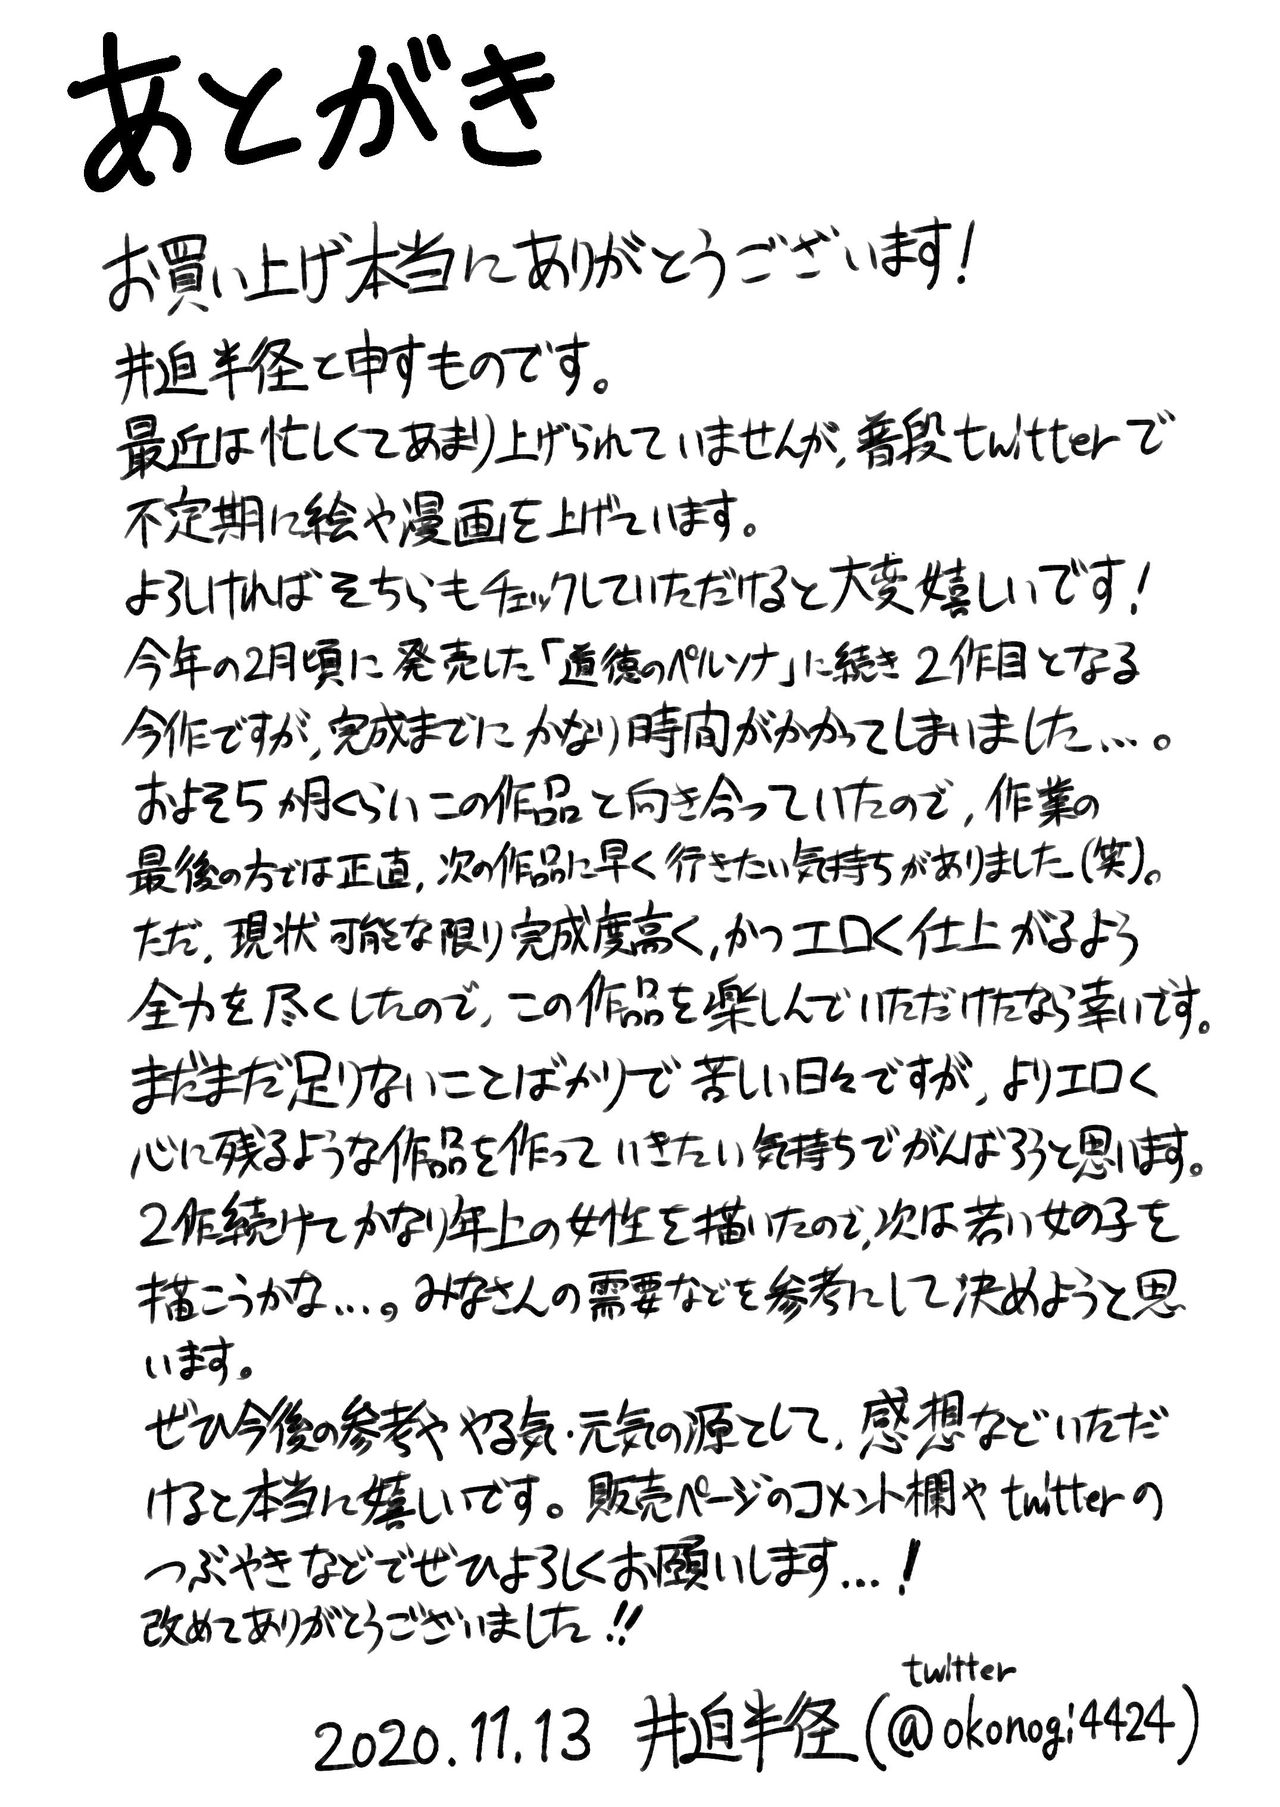 あとがき
お買い上げ本当にありがとうございます！
井迫半径と申すものです。
最近は忙しくてあまり上げられていませんが、普段twitterで
不定期に絵や漫画を上げています。
よろしければそちらもチェックしていただけると大変嬉しいです！
今年の2月頃に発売した「道徳のペルソナ」に続き2作目となる
今作ですが、完成までにかなり時間がかかってしまいました…。
およそ5か月くらいこの作品と向き合っていたので、作業の
最後の方では正直、次の作品に早く行きたい気持ちがありました(笑)。
ただ、現状可能な限り完成度高く、かつエロく仕上がるよう
全力を尽くしたので、この作品を楽しんでいただけたなら幸いです。
まだまだ足りないことばかりで苦しい日々ですが、よりエロく
心に残るような作品を作っていきたい気持ちでがんばろうと思います。
2作続けてかなり年上の女性を描いたので、次は若い女の子を
描こうかな…。みなさんの需要などを参考にして決めようと思
います。
ぜひ今後の参考ややる気・元気の源として、感想などいただ
けると本当に嬉しいです。販売ページのコメント欄やtwitterの
つぶやきなどでぜひよろしくお願いします…！
改めてありがとうございました!!
twitter
2020.11.13 井迫半径(@okonogi4424)